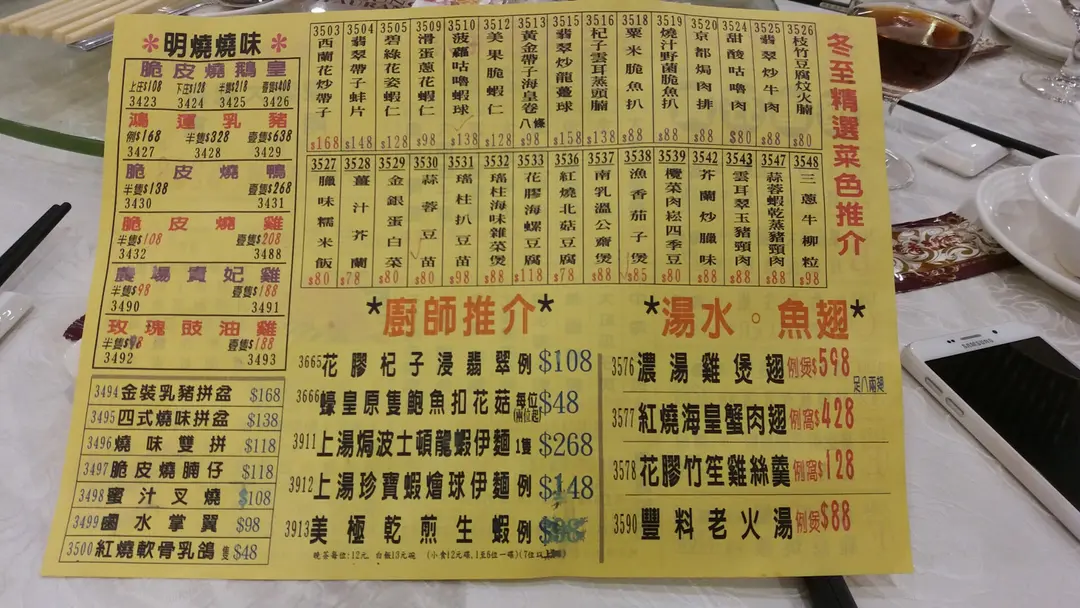 *明燒燒味*
脆皮燒鵝皇
上莊$108 下莊$128 半隻$218 壹隻$408
3423 3424 3425 3426
鴻運乳豬
例$168 半隻$328 壹隻$638
3427 3428 3429
脆皮燒鴨
半隻$138 壹隻$268
3430 3431
脆皮燒雞
半隻$108 壹隻$208
3432 3488
農場貴妃雞
半隻$98 壹隻$188
3490 3491
玫瑰豉油雞
半隻$98 壹隻$188
3492 3493
3494 金裝乳豬拼盆 $168
3495 四式燒味拼盆 $138
3496 燒味雙拼 $118
3497 脆皮燒腩仔 $118
3498 蜜汁叉燒 $108
3499 鹵水掌翼 $98
3500 紅燒軟骨乳鴿 隻 $48
冬至精選菜色推介
3503 西蘭花炒帶子 $168
3504 翡翠帶子蚌片 $148
3505 碧綠花姿蝦仁 $128
3509 滑蛋蔥花蝦仁 $98
3510 菠蘿咕嚕蝦球 $138
3512 美果脆蝦仁 $128
3513 黃金帶子海皇卷 八條 $98
3515 翡翠炒龍躉球 $158
3516 杞子雲耳蒸頭腩 $138
3518 粟米脆魚扒 $88
3519 燒汁野菌脆魚扒 $88
3520 京都焗肉排 $88
3524 甜酸咕嚕肉 $80
3525 翡翠炒牛肉 $88
3526 枝竹豆腐炆火腩 $80
3527 臘味糯米飯 $80
3528 薑汁芥蘭 $78
3529 金銀蛋白菜 $80
3530 蒜蓉豆苗 $80
3531 瑤柱扒豆苗 $98
3532 瑤柱海味雜菜煲 $88
3533 花膠海螺豆腐 $118
3536 紅燒北菇豆腐 $78
3537 南乳溫公齋煲 $88
3538 漁香茄子煲 $85
3539 欖菜肉崧四季豆 $80
3542 芥蘭炒臘味 $88
3543 雲耳翠玉豬頸肉 $88
3547 蒜蓉蝦乾蒸豬頸肉 $88
3548 三蔥牛柳粒 $98
*廚師推介*
3665 花膠杞子浸翡翠 例 $108
3666 蠔皇原隻鮑魚扣花菇 每位(兩位起) $48
3911 上湯焗波士頓龍蝦伊麵 1隻 $268
3912 上湯珍寶蝦燴球伊麵 例 $148
3913 美極乾煎生蝦 例 $98
晚茶每位:12元, 白飯13元碗 (小食12元碟,1至6位一碟)(7位以上
*湯水。魚翅*
3576 濃湯雞煲翅 例煲$598
足八兩翅
3577 紅燒海皇蟹肉翅 例窩$428
3578 花膠竹笙雞絲羹 例窩$128
3590 豐料老火湯 例煲$88